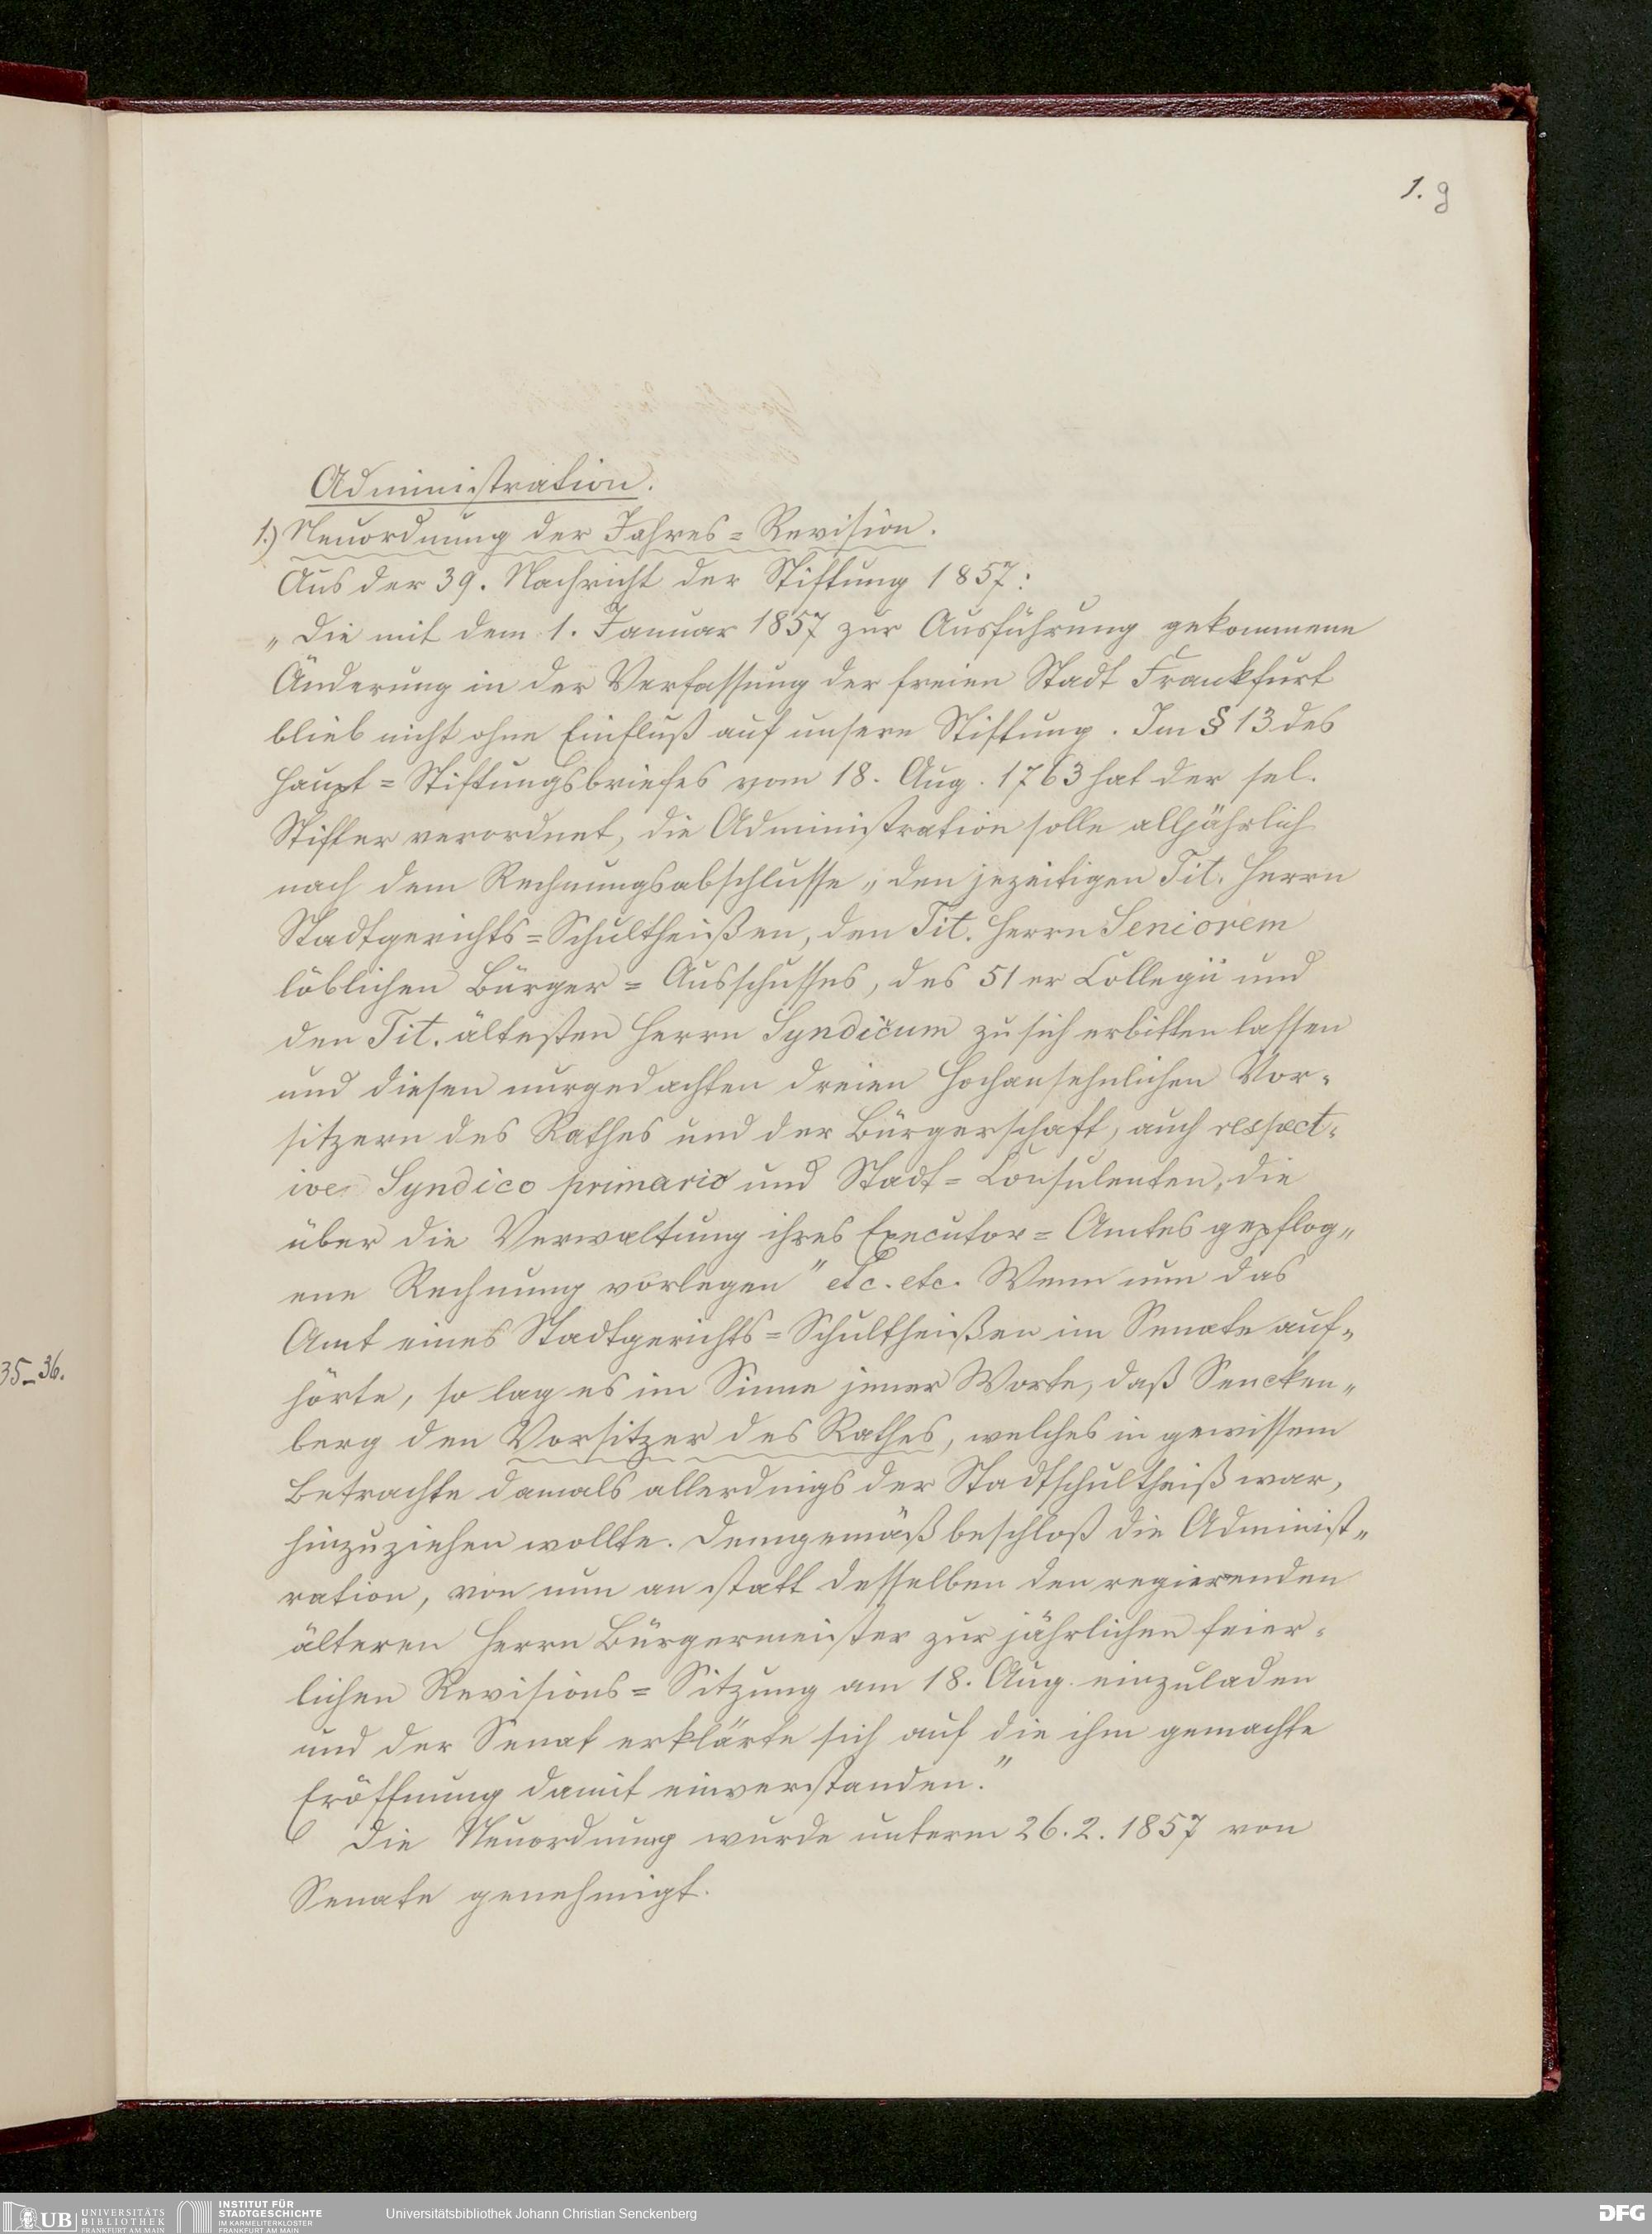 1. g
Administration.
1.) Neuordnung der Jahres=Revision.
Aus der 39. Nachricht der Stiftung 1857:
„Die mit dem 1. Januar 1857 zur Ausführung gekommene
Änderung in der Verfassung der freien Stadt Frankfurt
blieb nicht ohne Einfluß auf unsere Stiftung. Im § 13 des
Haupt=Stiftungsbriefes vom 18. Aug. 1763 hat der sel.
Stifter verordnet, die Administration solle alljährlich
nach dem Rechnungsabschlusse „den jezeitigen Tit. Herrn
Stadtgerichts=Schultheißen, den Tit. Herrn Seniorem
löblichen Bürger=Ausschusses, des 51er Collegii und
den Tit. ältesten Herrn Syndicum zu sich erbitten lassen
und diesen nurgedachten dreien Hochansehnlichen Vor-
sitzern des Rathes und der Bürgerschaft, auch respect-
ive Syndico primario und Stadt=Consulenten, die
über die Verwaltung ihres Executor=Amtes gepflog„
ene Rechnung vorlegen" etc. etc. Wenn nun das
Amt eines Stadtgerichts=Schultheißen im Senate auf„
hörte, so lag es im Sinne jener Worte, daß Sencken„
berg den Vorsitzer des Rathes, welches in gewissem
Betrachte damals allerdings der Stadtschultheiß war,
hinzuziehen wollte. Demgemäß beschloß die Administ„
ration, von nun an statt desselben den regierenden
älteren Herrn Bürgermeister zur jährlichen feier-
lichen Revisions=Sitzung am 18. Aug. einzuladen
und der Senat erklärte sich auf die ihm gemachte
Eröffnung damit einverstanden."
Die Neuordnung wurde unterm 26.2.1857 von
Senate genehmigt.
35–36.
UB UNIVERSITÄTS BIBLIOTHEK FRANKFURT AM MAIN
INSTITUT FÜR STADTGESCHICHTE IM KARMELITERKLOSTER FRANKFURT AM MAIN
Universitätsbibliothek Johann Christian Senckenberg
DFG